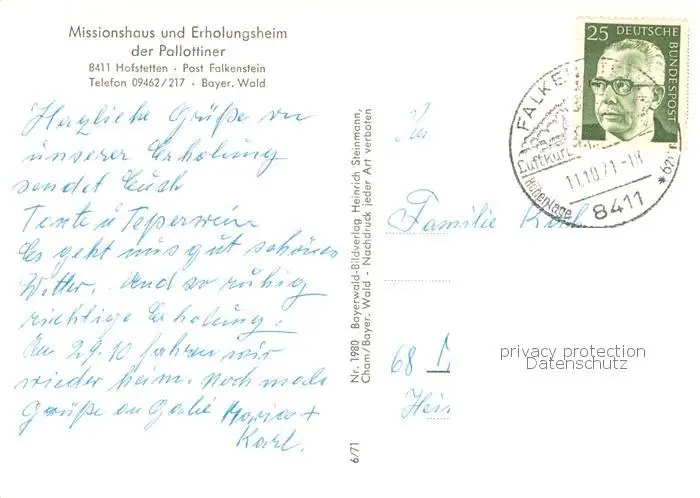 Missionshaus und Erholungsheim
der Pallottiner
8411 Hofstetten · Post Falkenstein
Telefon 09462/217 · Bayer. Wald
Herzliche Grüße von
unserer Erholung
sendet Euch
Tante u
Es geht uns gut schönes
Wetter. Und so ruhig
richtige Erholung.
Am 29.10 fahren wir
wieder heim. Noch mals
Grüße an Gabi Maria +
Karl.
Nr. 1980 Bayerwald-Bildverlag Heinrich Steinmann,
Cham/Bayer. Wald - Nachdruck jeder Art verboten
6/71
25 DEUTSCHE
BUNDESPOST
FALKEN
Luftkur
Höhenlage
11.10.71-18
8411
Familie Karl
68
privacy protection
Datenschutz